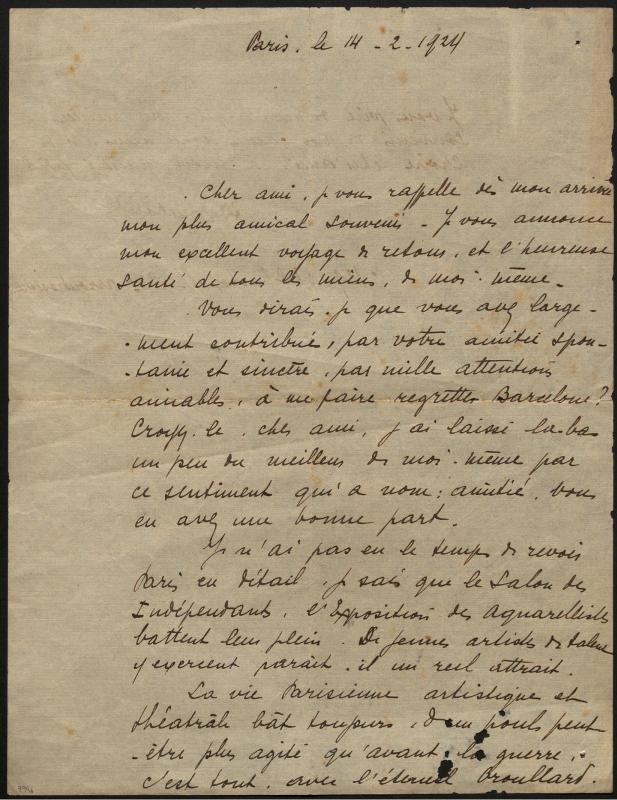 Paris, le 14 - 2 - 1924
Cher ami, je vous rappelle dès mon arrivée
mon plus amical souvenir - Je vous annonce
mon excellent voyage de retour, et l'heureuse
santé de tous les miens, de moi-même -
Vous dirais-je que vous avez large-
-ment contribué, par votre amitié spon-
-tanée et sincère, par mille attentions
aimables, à me faire regretter Barcelone?
Croyez-le, cher ami, j'ai laissé là-bas
un peu du meilleur de moi-même par
ce sentiment qui a nom: amitié. Vous
en avez une bonne part.
Je n'ai pas eu le temps de revoir
Paris en détail. Je sais que le Salon des
Indépendants, l'Exposition des Aquarellistes
battent leur plein. De jeunes artistes de talent
y exercent paraît-il un réel attrait.
La vie Parisienne artistique et
théâtrale bât toujours, d'un pouls peut
-être plus agité qu'avant la guerre.
C'est tout, avec l'éternel brouillard.